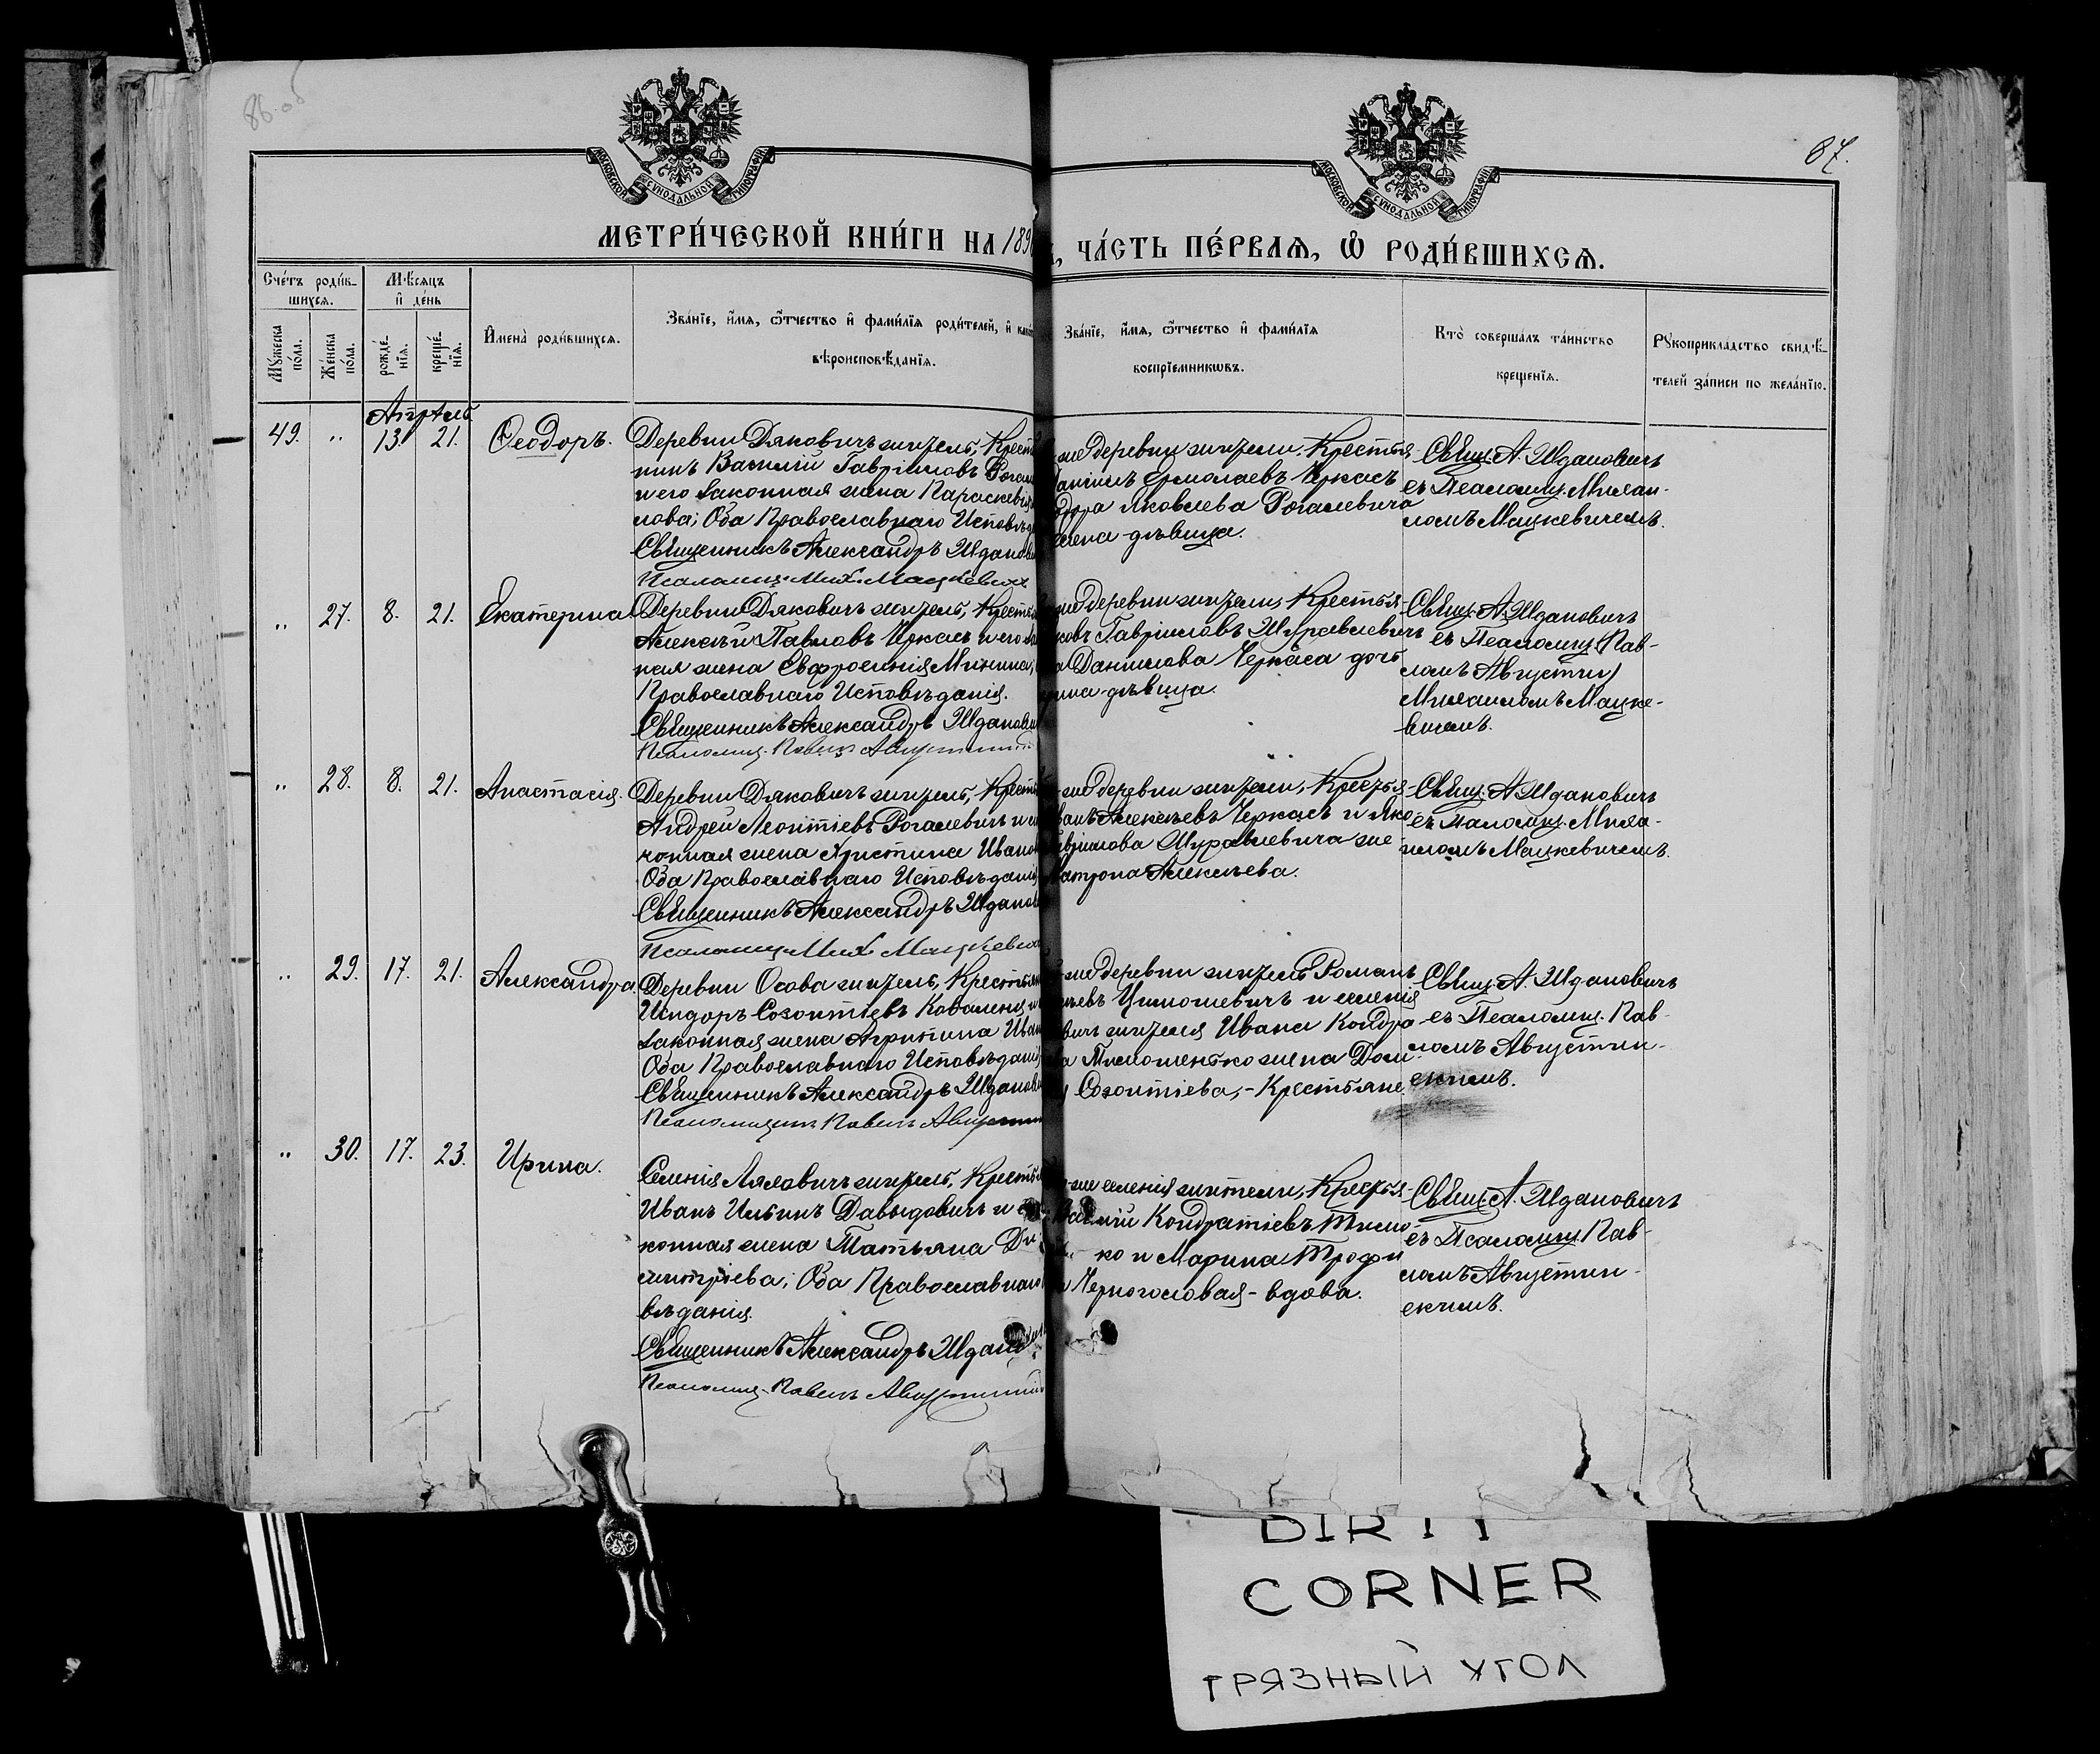 86 об
87.
МОСКОВСКОЙ СѴНОДАЛЬНОЙ ТИПОГРАФІИ
МОСКОВСКОЙ СѴНОДАЛЬНОЙ ТИПОГРАФІИ
МЕТРИ́ЧЕСКОЙ КНИ́ГИ НА 189
ЧА́СТЬ ПЕ́РВАѦ, Ѡ҆ РОДИ́ВШИХСѦ.
Сче́тъ роди́в-
шихсѧ.
Мѣ́сѧцъ
и҆ де́нь
Мꙋ́жеска
по́ла.
Же́нска
по́ла.
рожде́-
нїѧ.
креще́-
нїѧ.
И҆мена̀ роди́вшихсѧ.
Зва́нїе, и҆́мѧ, ѻ҆́тчество и҆ фами́лїѧ роди́телей, и҆
вѣроисповѣ́данїѧ.
Зва́нїе, и҆́мѧ, ѻ҆́тчество и҆ фами́лїѧ
воспрїе́мникѡвъ.
Кто̀ соверша́лъ та́инство
креще́нїѧ.
Рꙋкоприкла́дство свидѣ́-
телей за́писи по жела́нїю.
Апрѣль
49. " 13. 21. Ѳеодоръ.
Деревни Дяковичъ житель, Крест
нинъ Василій Гавріиловъ Рогал
и его законная жена Параскева
лова; Оба Православнаго Исповѣд
Священникъ Александръ Ждано
Псаломщ. Мих. Мацкевич
же деревни жители: Крестья-
Даніилъ Ермолаевъ Черкасъ
Яковлева Рогалевича
дѣвица.
Свящ. А. Ждановичъ
съ Псаломщ. Михаи-
ломъ Мацкевичемъ.
" 27. 8. 21. Екатерина
Деревни Дяковичъ житель, Крестья
Алексѣй Павловъ Черкасъ и его за
ная жена Евфросинія Минина,
Православнаго Исповѣданія.
Священникъ Александръ Жданови
Псаломщ. Павелъ Августин
же деревни жители, Крестья-
Гавріиловъ Журавлевичъ
Данилова Черкаса дочь
дѣвица.
Свящ. А. Ждановичъ
съ Псаломщ. (Пав-
ломъ Августин)
Михаиломъ Мацке-
вичемъ.
" 28. 8. 21. Анастасія.
Деревни Дяковичъ житель, Крест
Андрей Леонтіевъ Рогалевичъ и
конная жена Христина Иванов
Оба Православнаго Исповѣданія
Священникъ Александръ Жданов
Псаломщ. Мих. Мацкевич
же деревни жители, Крестья-
Алексѣевъ Черкасъ и Яко-
Журавлевича же
Матрона Алексѣева.
Свящ. А. Ждановичъ
съ Псаломщ. Миха-
иломъ Мацкевичемъ.
" 29. 17. 21. Александра.
Деревни Осова житель, Крестьян
Исидоръ Созонтіевъ Коваленя и
законная жена Христина Иван
Оба Православнаго Исповѣданія
Священникъ Александръ Жданов
Псаломщикъ Павелъ Августин
же деревни житель Романъ
и селенія
житель Ивана Кондра-
жена Дом
Созонтіева,- Крестьяне.
Свящ. А. Ждановичъ
съ Псаломщ. Пав-
ломъ Августин-
скимъ.
" 30. 17. 23. Ирина.
Селенія Ляховичъ житель, Крестья
Иванъ Ильинъ Давыдовичъ и
конная жена Татьяна Ди-
митріева; Оба Православнаго
вѣданія.
Священникъ Александръ Ждано
Псаломщ. Павелъ Августин
же селенія жители, Крестья-
Василій Кондратіевъ Тимо-
ко и Марина Трофи
Черноголовая- вдова.
Свящ. А. Ждановичъ
съ Псаломщ. Пав-
ломъ Августин-
скимъ.
DIRTY
CORNER
ГРЯЗНЫЙ УГОЛ